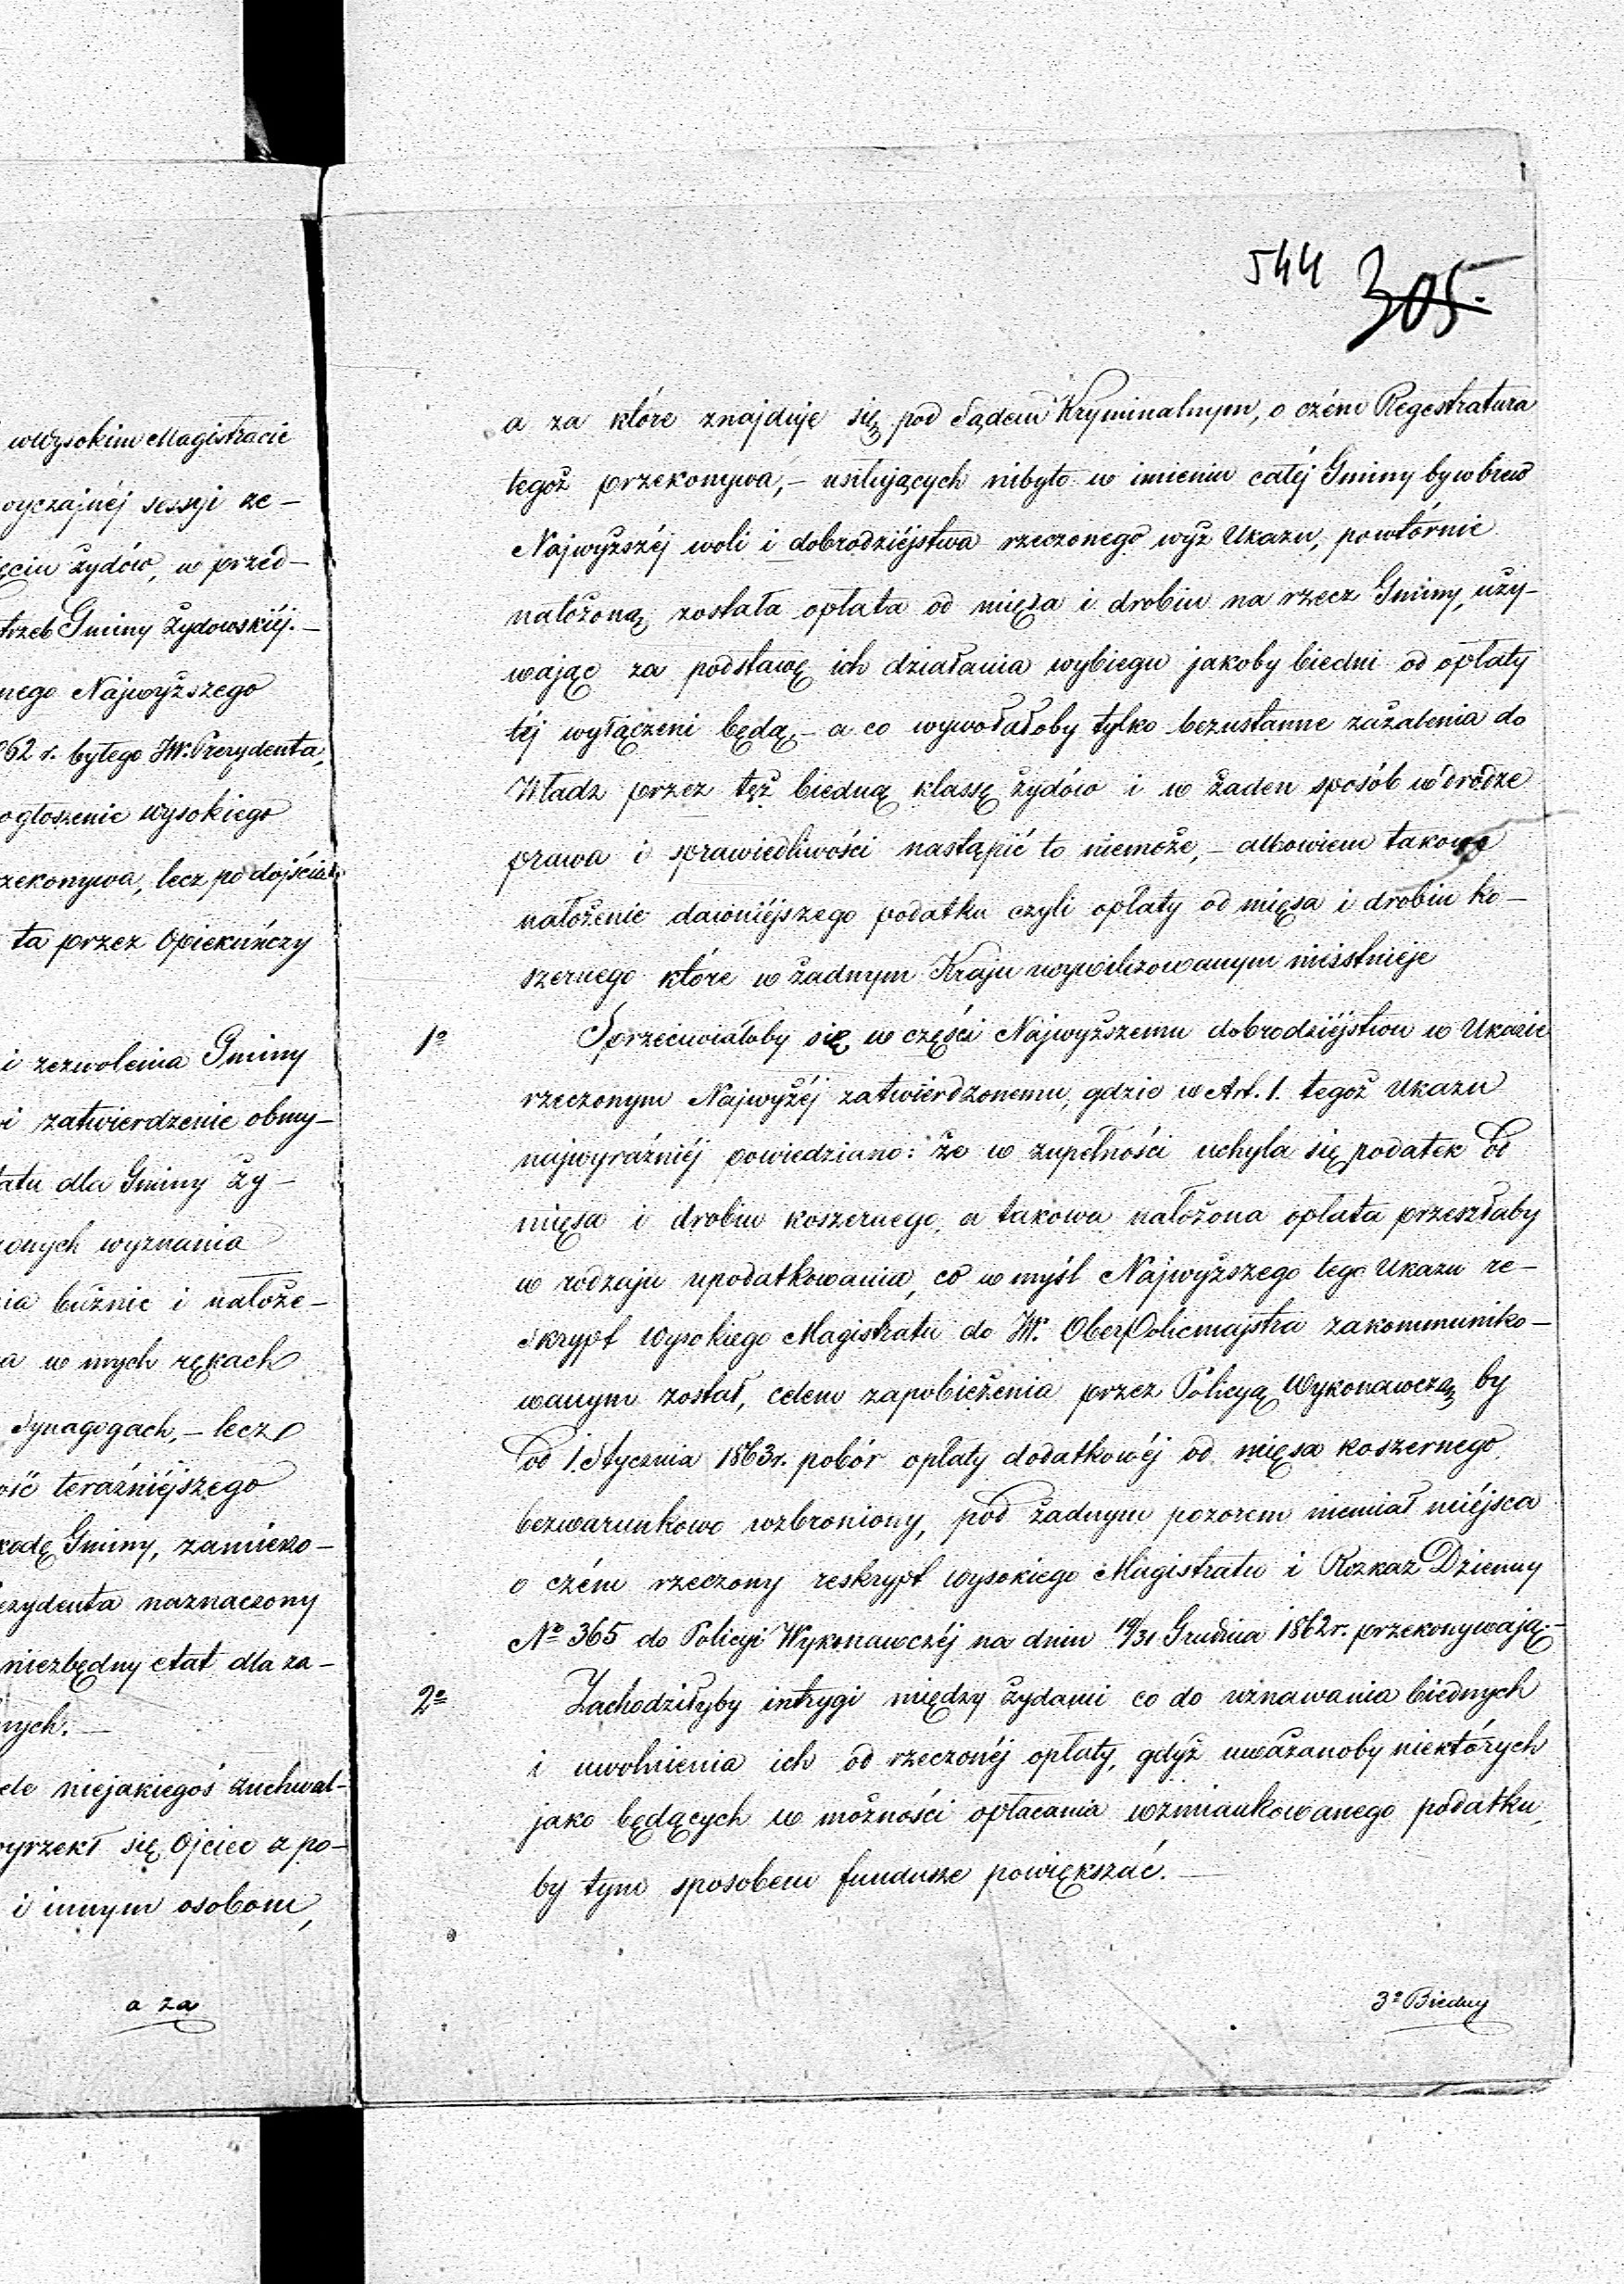 wWysokim Magistracie
wyczajnéj sessyi ze-
ęciu żydów, w przed-
trzeb Gminy Żydowskiéj.-
nego Najwyższego
862 r. byłego JW. Prezydenta,
ogłoszenie Wysokiego
zekonywa, lecz po dojściu
ta przez Opiekuńczy
i zezwolenia Gminy
i zatwierdzenie obmy-
atu dla Gminy Ży-
onych wyznania
ia bużnic i nałoże-
a w mych rękach
Synagogach,- lecz
ość teraźniéjszego
kodę Gminy, zamierzo-
ezydenta naznaczony
niezbędny etat dla za-
nych.-
ele niejakiegoś zuchwal-
yrzekł się Ojciec z po-
i innym osobom,
a za
544 305.
a za które znajduje się pod Sądem Kryminalnym, o czém Regestratura
tegoż przekonywa,- usiłujących nibyto w imieniu całéj Gminy by wbrew
Najwyższéj woli i dobrodziéjstwa rzeczonego wyż Ukazu, powtórnie
nałożoną została opłata od mięsa i drobiu na rzecz Gminy, uży-
wając za podstawę ich działania wybiegu jakoby biedni od opłaty
téj wyłączeni będą,- a co wywołałoby tylko bezustanne zażalenia do
Władz przez tęż biedną klassę żydów i w żaden sposób w drodze
prawa i sprawiedliwości nastąpić to niemoże,- albowiem takowe
nałożenie dawniéjszego podatku czyli opłaty od mięsa i drobiu ko-
szernego które w żadnym Kraju ucywilizowanym nieistnieje
1o Sprzeciwiałoby się w części Najwyższemu dobrodziéjstwu w Ukazie
rzeczonym Najwyżéj zatwierdzonemu, gdzie w Art. 1. tegoż Ukazu
najwyraźniéj powiedziano: że w zupełności uchyla się podatek od
mięsa i drobiu koszernego, a takowa nałożona opłata przeszłaby
w rodzaju upodatkowania, co w myśl Najwyższego tego Ukazu re-
skrypt Wysokiego Magistratu do JW. OberPolicmajstra zakommuniko-
wanym został, celem zapobieżenia przez Policyą Wykonawczą by
od 1. Stycznia 1863 r. pobór opłaty dodatkowéj od mięsa koszernego
bezwarunkowo wzbroniony, pod żadnym pozorem niemiał miéjsca
o czém rzeczony reskrypt wysokiego Magistratu i Rozkaz Dzienny
No 365 do Policyi Wykonawczéj na dniu 19/31 Grudnia 1862 r. przekonywają.-
2o Zachodziłyby intrygi między żydami co do uznawania biednych
i uwolnienia ich od rzeczonéj opłaty, gdyż uważanoby niektórych
jako będących w możności opłacania wzmiankowanego podatku,
by tym sposobem fundusze powiększać.-
3o Biedny